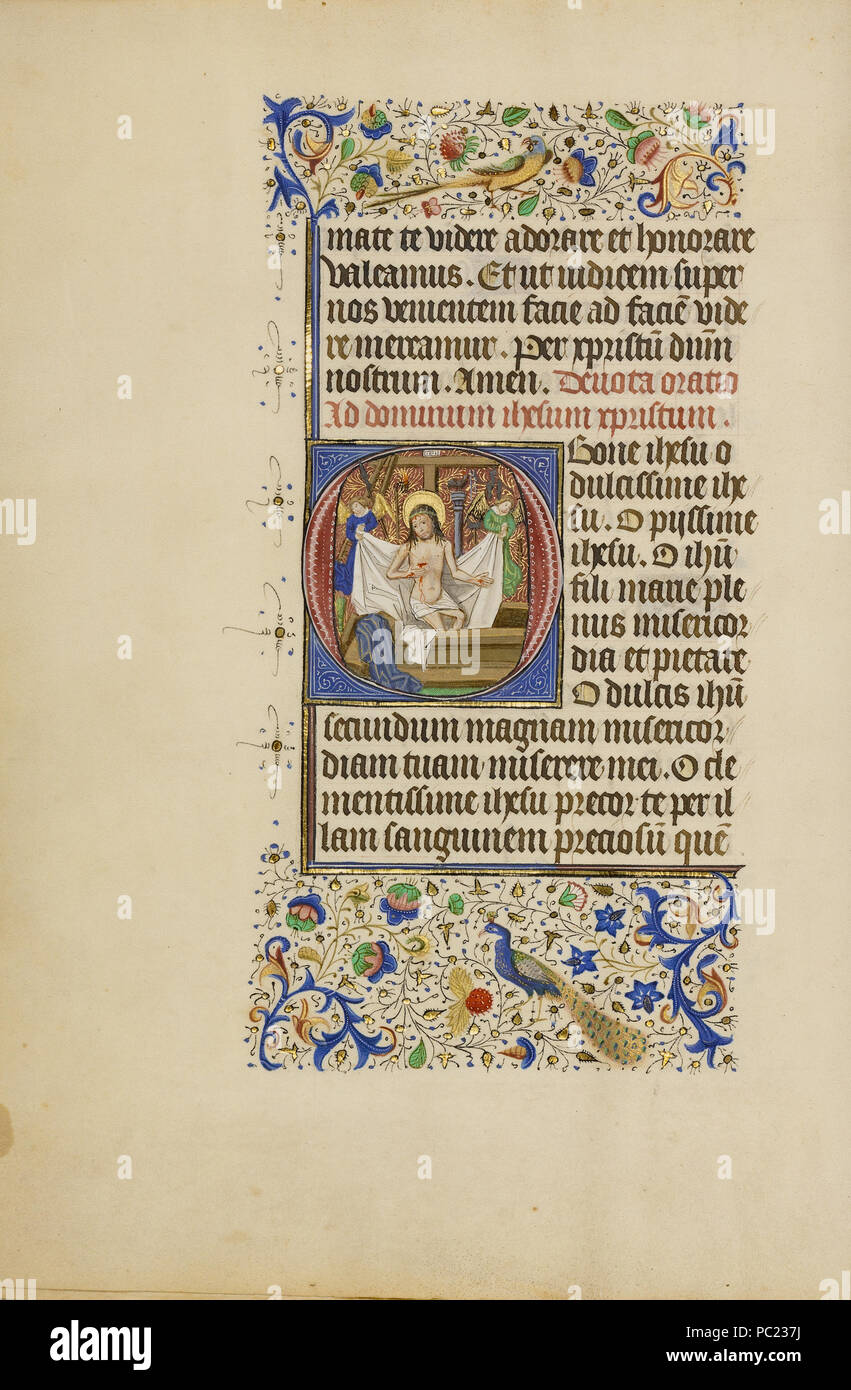 mate te videre adorare et honorare
valeamus. Et ut iudicem super
nos venientem facie ad faciē vide
re mereamur. Per xpristū dūm
nostrum. Amen. Deuota oratio
Ad dominum ihesum xpristum.
Bone ihesu o
dulcissime ihe
su. O pijssime
ihesu. O ihū
fili marie ple
nus misericor
dia et pietate
O dulcis ihū
secundum magnam misericor
diam tuam miserere mei. O cle
mentissime ihesu precor te per il
lam sanguinem preciosū quē
a
alamy
Image ID: PC237J
www.alamy.com